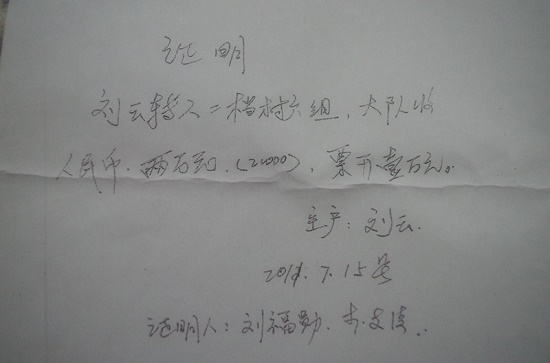 证明
刘云转入二档村六组、大队收
人民币.两万元.(20000),票开壹万元。
主户:刘云.
7.15号
证明人:刘福勤.